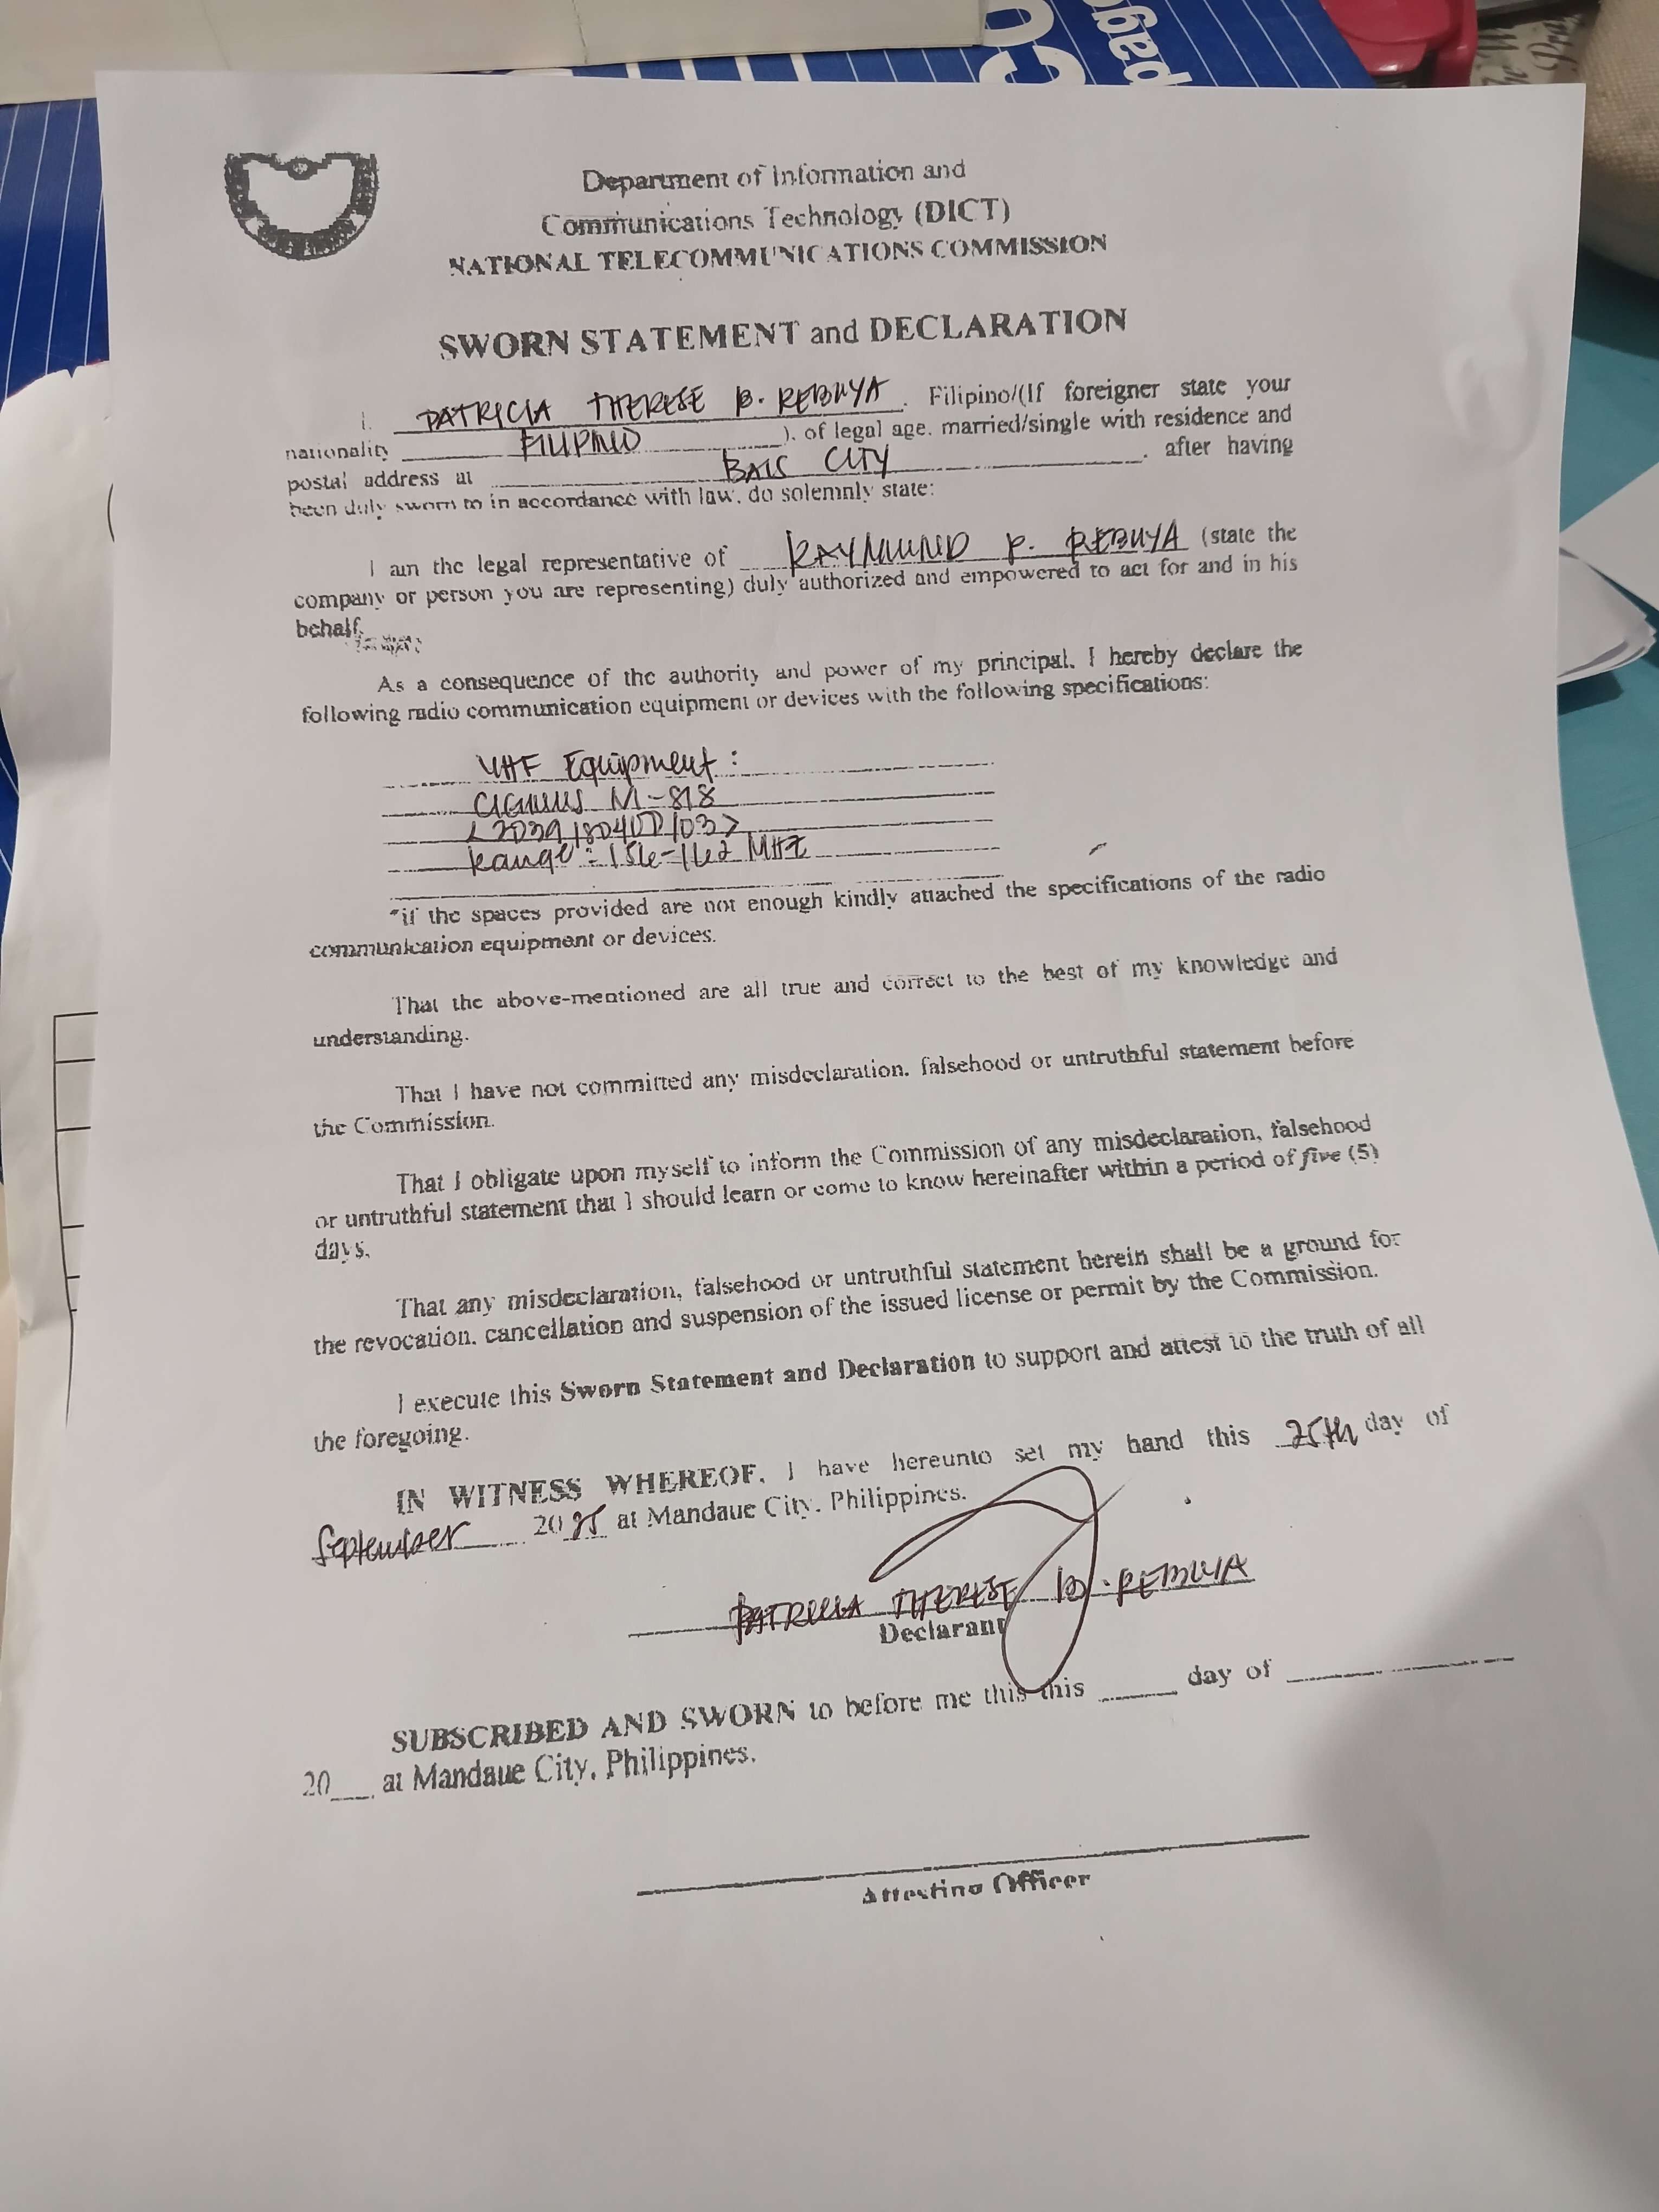 Department of Information and
Communications Technology (DICT)
NATIONAL TELECOMMUNICATIONS COMMISSION
SWORN STATEMENT and DECLARATION
I, PATRICIA THERESE B. REBUYA, Filipino/(If foreigner state your
nationality FILIPINO ), of legal age, married/single with residence and
postal address at BAIS CITY, after having
been duly sworn to in accordance with law, do solemnly state:
I am the legal representative of RAYMUND P. REBUYA (state the
company or person you are representing) duly authorized and empowered to act for and in his
behalf.
As a consequence of the authority and power of my principal, I hereby declare the
following radio communication equipment or devices with the following specifications:
VHF Equipment :
CIGNUS M-818
Range : 156-162 MHz
*if the spaces provided are not enough kindly attached the specifications of the radio
communication equipment or devices.
That the above-mentioned are all true and correct to the best of my knowledge and
understanding.
That I have not committed any misdeclaration, falsehood or untruthful statement before
the Commission.
That I obligate upon myself to inform the Commission of any misdeclaration, falsehood
or untruthful statement that I should learn or come to know hereinafter within a period of five (5)
days.
That any misdeclaration, falsehood or untruthful statement herein shall be a ground for
the revocation, cancellation and suspension of the issued license or permit by the Commission.
I execute this Sworn Statement and Declaration to support and attest to the truth of all
the foregoing.
IN WITNESS WHEREOF, I have hereunto set my hand this 25th day of
September 2025 at Mandaue City, Philippines.
PATRICIA THERESE B. REBUYA
Declarant
SUBSCRIBED AND SWORN to before me this this ____ day of ____
20___ at Mandaue City, Philippines.
Attesting Officer